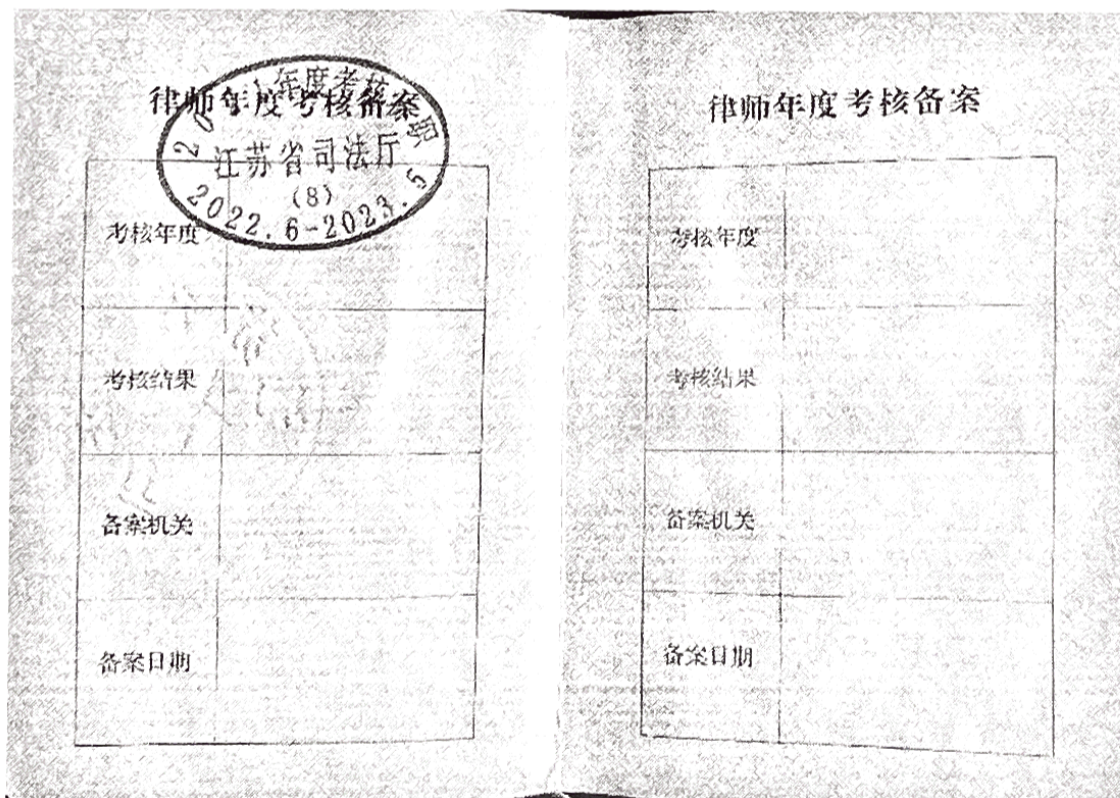 律师年度考核备案
年度考核
职
江苏省司法厅
(8)
2022.6-2023.5
考核年度
考核结果
备案机关
备案日期
律师年度考核备案
考核年度
考核结果
备案机关
备案日期